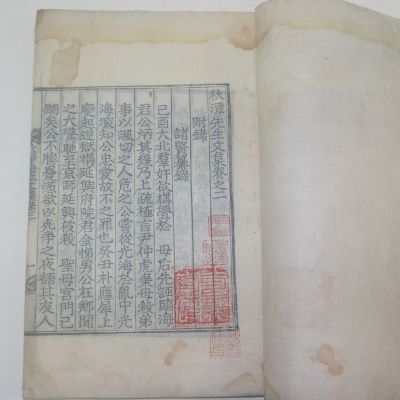 秋潭先生文集卷之二
附錄
諸賢摭錄
己酉大北羣奸欲構釁於 母后先誣臨海
君公炳其幾乃上疏極言尹仲虎棄母殺弟
事以諷切之人危之公嘗從光海於亂中光
海深知公忠愛故不之罪也癸丑朴應犀上
變起誣獄構延興府院君金悌男公在鄉聞
之大驚馳至京師延興被殺 聖母宮門已
錮矣公不勝憂憤欲以死爭之夜語其友人